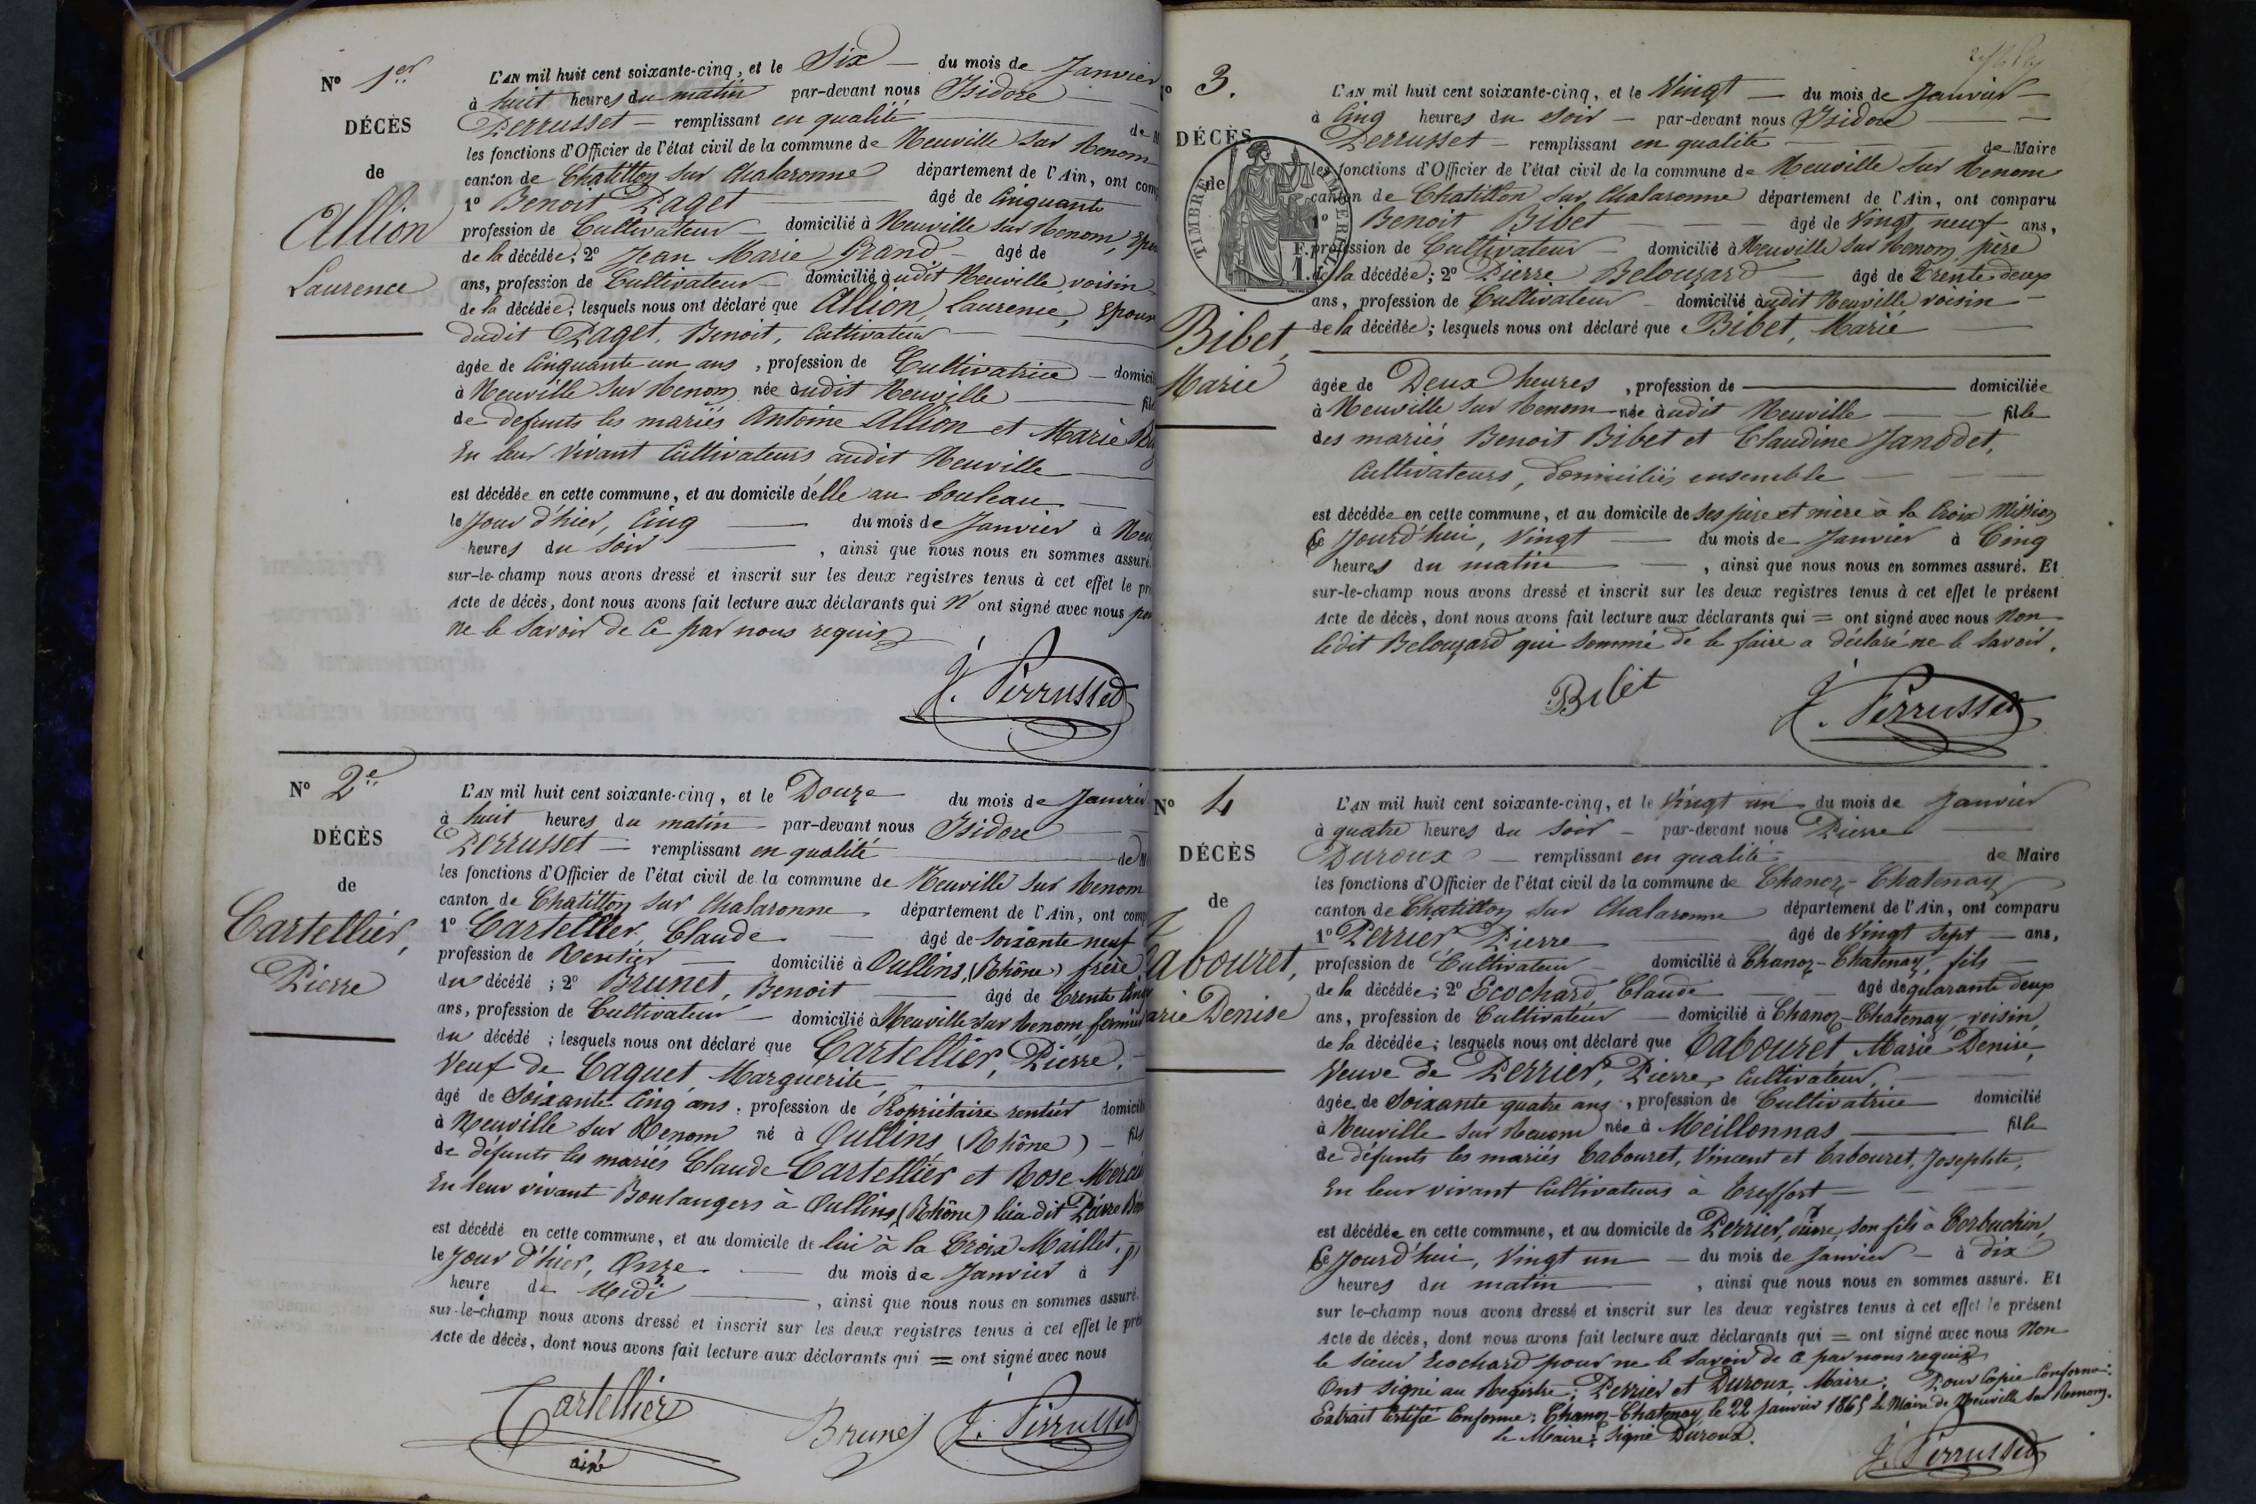 Nº 1er
DÉCÈS
de
Allion
Laurence
L'AN mil huit cent soixante-cinq, et le Six du mois de Janvier
à huit heures du matin par-devant nous Isidore
Perrusset remplissant en qualité de M
les fonctions d'Officier de l'état civil de la commune de Neuville sur Renom
canton de Chatillon sur Chalaronne département de l'Ain, ont com
1º Benoit Paget âgé de Cinquante
profession de Cultivateur domicilié à Neuville sur Renom, Epou
de la décédée; 2º Jean Marie Grand âgé de
ans, profession de Cultivateur domicilié audit Neuville, voisin
de la décédée; lesquels nous ont déclaré que Allion, Laurence, Epouse
dudit Paget, Benoit, Cultivateur
âgée de Cinquante un ans, profession de Cultivatrice domicil
à Neuville sur Renom née audit Neuville fil
de defunts les mariés Antoine Allion et Marie
En leur vivant Cultivateurs audit Neuville
est décédée en cette commune, et au domicile d'elle au bouleau
le Jour d'hier, Cinq du mois de Janvier à Neuf
heures du soir, ainsi que nous nous en sommes assuré.
sur-le-champ nous avons dressé et inscrit sur les deux registres tenus à cet effet le pré
Acte de décès, dont nous avons fait lecture aux déclarants qui n'ont signé avec nous pour
ne le savoir de ce par nous requis
J. Perrusset
Nº 2e
DÉCÈS
de
Cartellier,
Pierre
L'AN mil huit cent soixante-cinq, et le Douze du mois de Janvier
à huit heures du matin par-devant nous Isidore
Perrusset remplissant en qualité de M
les fonctions d'Officier de l'état civil de la commune de Neuville sur Renom
canton de Chatillon sur Chalaronne département de l'Ain, ont comp
1º Cartellier, Claude âgé de soixante neuf
profession de Rentier domicilié à Oullins, (Rhône) frère
du décédé; 2º Brunet, Benoit âgé de Trente Cinq
ans, profession de Cultivateur domicilié à Neuville sur Renom, fermier
du décédé; lesquels nous ont déclaré que Cartellier, Pierre,
Veuf de Caquet, Marguerite,
âgé de Soixante Cinq ans, profession de Propriétaire rentier domicilié
à Neuville sur Renom né à Oullins (Rhône) fils
de défunts les mariés Claude Cartellier et Rose
En leur vivant Boulangers à Oullins, (Rhône) lieu dit Pierre
est décédé en cette commune, et au domicile de lui à la Croix Maillet,
le Jour d'hier, Onze du mois de Janvier à
heure de Midi, ainsi que nous nous en sommes assuré.
sur-le-champ nous avons dressé et inscrit sur les deux registres tenus à cet effet le pré
Acte de décès, dont nous avons fait lecture aux déclarants qui = ont signé avec nous
Cartellier
ainé
Brunet
J. Perrusset
º 3.
DÉCÈS
de
TIMBRE IMPERIAL
F.
1.
Bibet,
Marie
L'AN mil huit cent soixante-cinq, et le Vingt du mois de Janvier
à Cinq heures du soir par-devant nous Isidore
Perrusset remplissant en qualité de Maire
les fonctions d'Officier de l'état civil de la commune de Neuville sur Renom
canton de Chatillon sur Chalaronne département de l'Ain, ont comparu
1º Benoit Bibet âgé de Vingt neuf ans,
profession de Cultivateur domicilié à Neuville sur Renom, père
de la décédée; 2º Pierre Belouzard âgé de Trente-deux
ans, profession de Cultivateur domicilié audit Neuville, voisin
de la décédée; lesquels nous ont déclaré que Bibet, Marie
âgée de Deux heures, profession de domiciliée
à Neuville sur Renom née audit Neuville fille
des mariés Benoit Bibet et Claudine Janodet,
Cultivateurs, Domiciliés ensemble
est décédée en cette commune, et au domicile de ses père et mère à la Croix Mission
Ce Jourd'hui, Vingt du mois de Janvier à Cinq
heures du matin, ainsi que nous nous en sommes assuré. Et
sur-le-champ nous avons dressé et inscrit sur les deux registres tenus à cet effet le présent
Acte de décès, dont nous avons fait lecture aux déclarants qui = ont signé avec nous Non
ledit Belouzard qui sommé de le faire a déclaré ne le savoir.
Bibet
J. Perrusset
Nº 4
DÉCÈS
de
Tabouret,
arie Denise
L'AN mil huit cent soixante-cinq, et le Vingt un du mois de Janvier
à quatre heures du soir par-devant nous Pierre
Duroux remplissant en qualité de Maire
les fonctions d'Officier de l'état civil de la commune de Chanoz-Chatenay
canton de Chatillon sur Chalaronne département de l'Ain, ont comparu
1º Perrier, Pierre âgé de Vingt sept ans,
profession de Cultivateur domicilié à Chanoz-Chatenay, fils
de la décédée; 2º Ecochard, Claude âgé de quarante deux
ans, profession de Cultivateur domicilié à Chanoz-Chatenay, voisin,
de la décédée; lesquels nous ont déclaré que Tabouret, Marie Denise,
Veuve de Perrier, Pierre, Cultivateur,
âgée de Soixante quatre ans, profession de Cultivatrice domicilié
à Neuville sur Renom née à Meillonnas fille
de défunts les mariés Tabouret, Vincent et Tabouret, Josephte,
En leur vivant Cultivateurs à Treffort
est décédée en cette commune, et au domicile de Perrier, Pierre, son fils à Corbuchin,
Ce Jourd'hui, Vingt un du mois de Janvier à dix
heures du matin, ainsi que nous nous en sommes assuré. Et
sur le-champ nous avons dressé et inscrit sur les deux registres tenus à cet effet le présent
Acte de décès, dont nous avons fait lecture aux déclarants qui = ont signé avec nous Non
le sieur Ecochard pour ne le savoir de ce par nous requis
Ont signé au Registre: Perrier et Duroux, Maire; Pour Copie Conforme:
Extrait Certifié Conforme: Chanoz-Chatenay, le 22 Janvier 1865 Le Maire de Neuville sur Renom,
Le Maire: Signé Duroux.
J. Perrusset